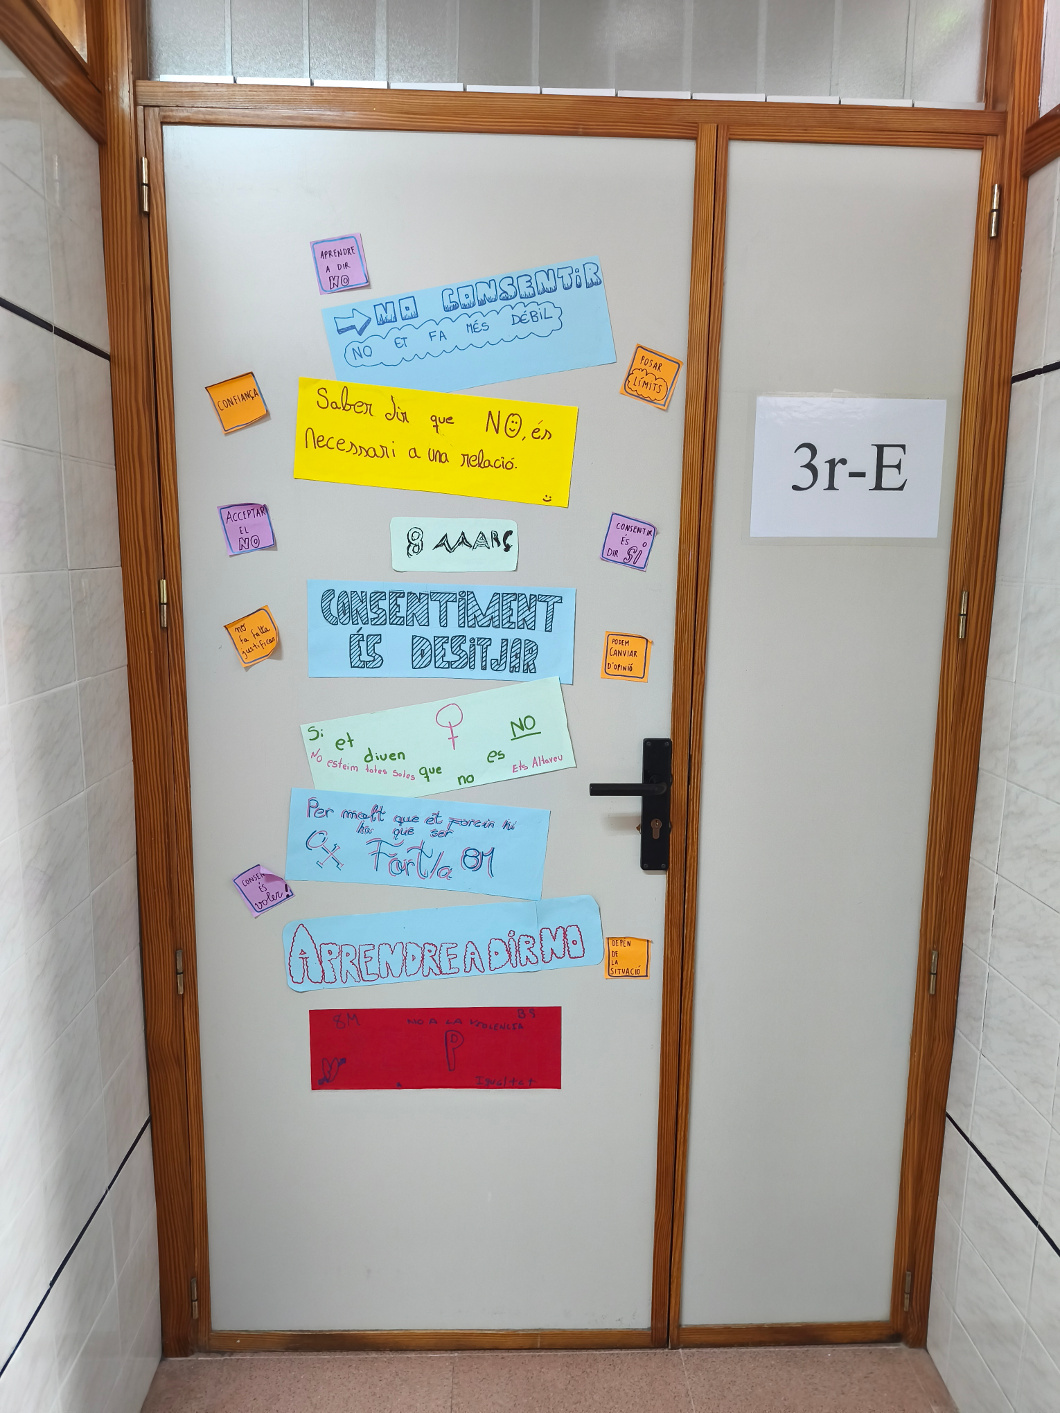 APRENDRE
A DIR
NO
NO CONSENTIR
NO ET FA MÉS DÉBIL
POSAR
LÍMITS
CONFIANÇA
Saber dir que NO, és
necessari a una relació.
3r-E
ACCEPTAR
EL
NO
8 MARÇ
CONSENTIR
ÉS
DIR SÍ
CONSENTIMENT
ÉS DESITJAR
no
fa falta
justificar
PODEM
CANVIAR
D'OPINIÓ
Si et diven que no es NO
No esteim totes soles
Ets Altaveu
Per molt que et
hi que ser
Fort/a 8M
CONSEN
ÉS
voler!
APRENDRE A DIR NO
DEPEN
DE
LA
SITUACIÓ
8M
NO A LA
Igualtat